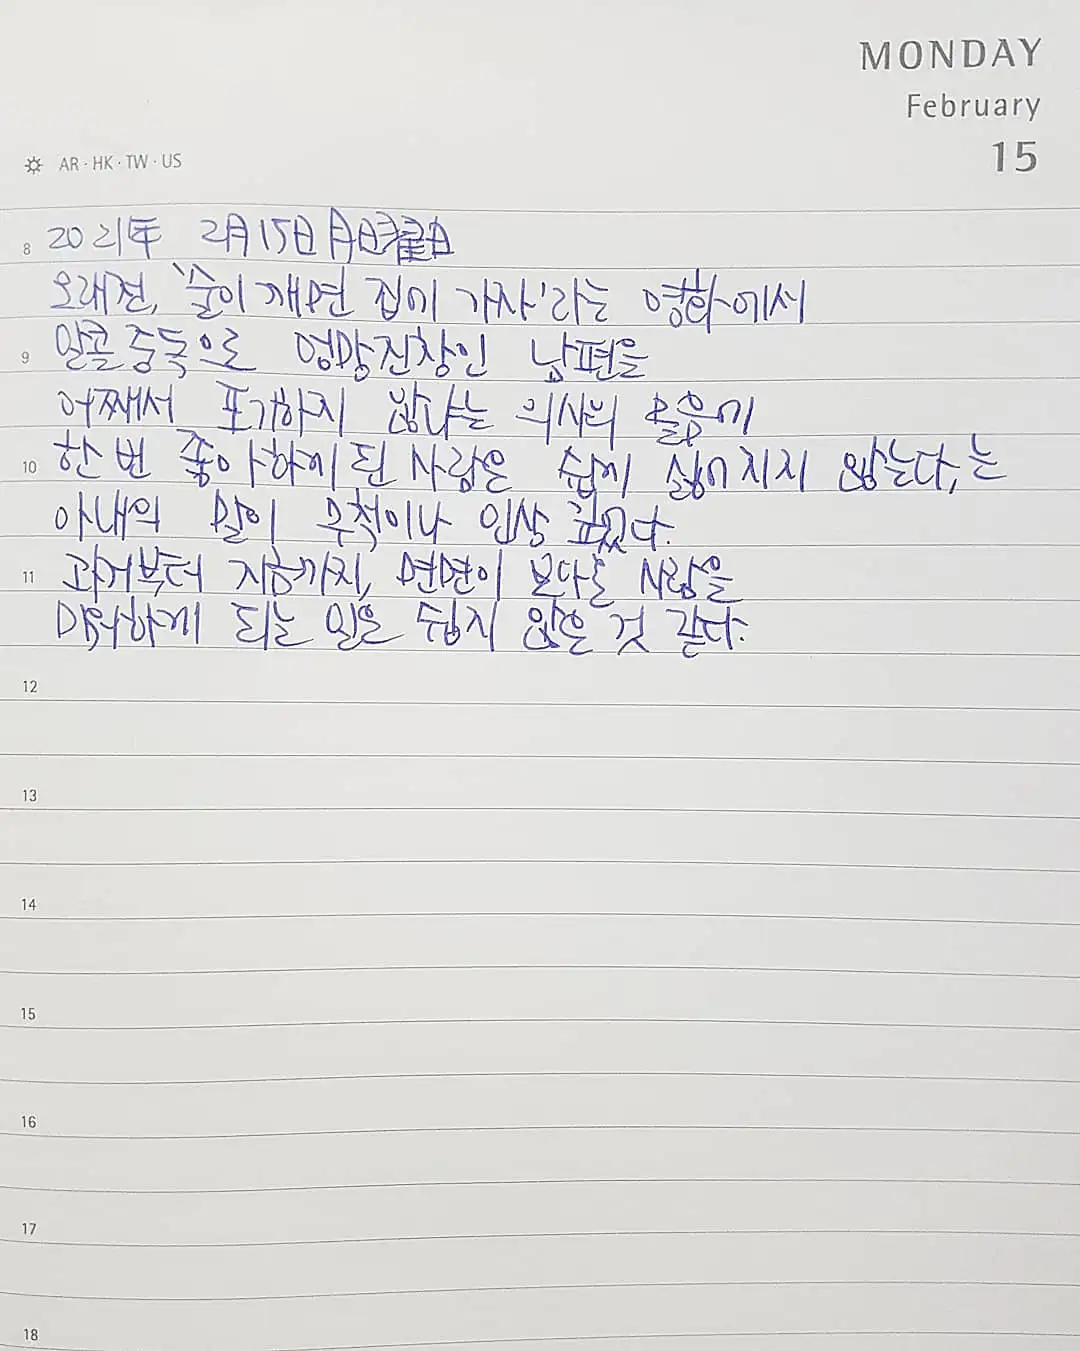 MONDAY
February
15
AR · HK · TW · US
8 2021年 2月15日 月曜日
오래전, '술이 깨면 집에 가자'라는 영화에서
9 알콜중독으로 엉망진창인 남편을
어째서 포기하지 않냐는 의사의 물음에
10 한번 좋아하게 된 사람은 쉽게 싫어지지 않는다, 는
아내의 말이 무척이나 인상 깊었다.
11 과거부터 지금까지, 면면이 보다는 사람을
미워하게 되는 일은 쉽지 않은 것 같다.
12
13
14
15
16
17
18